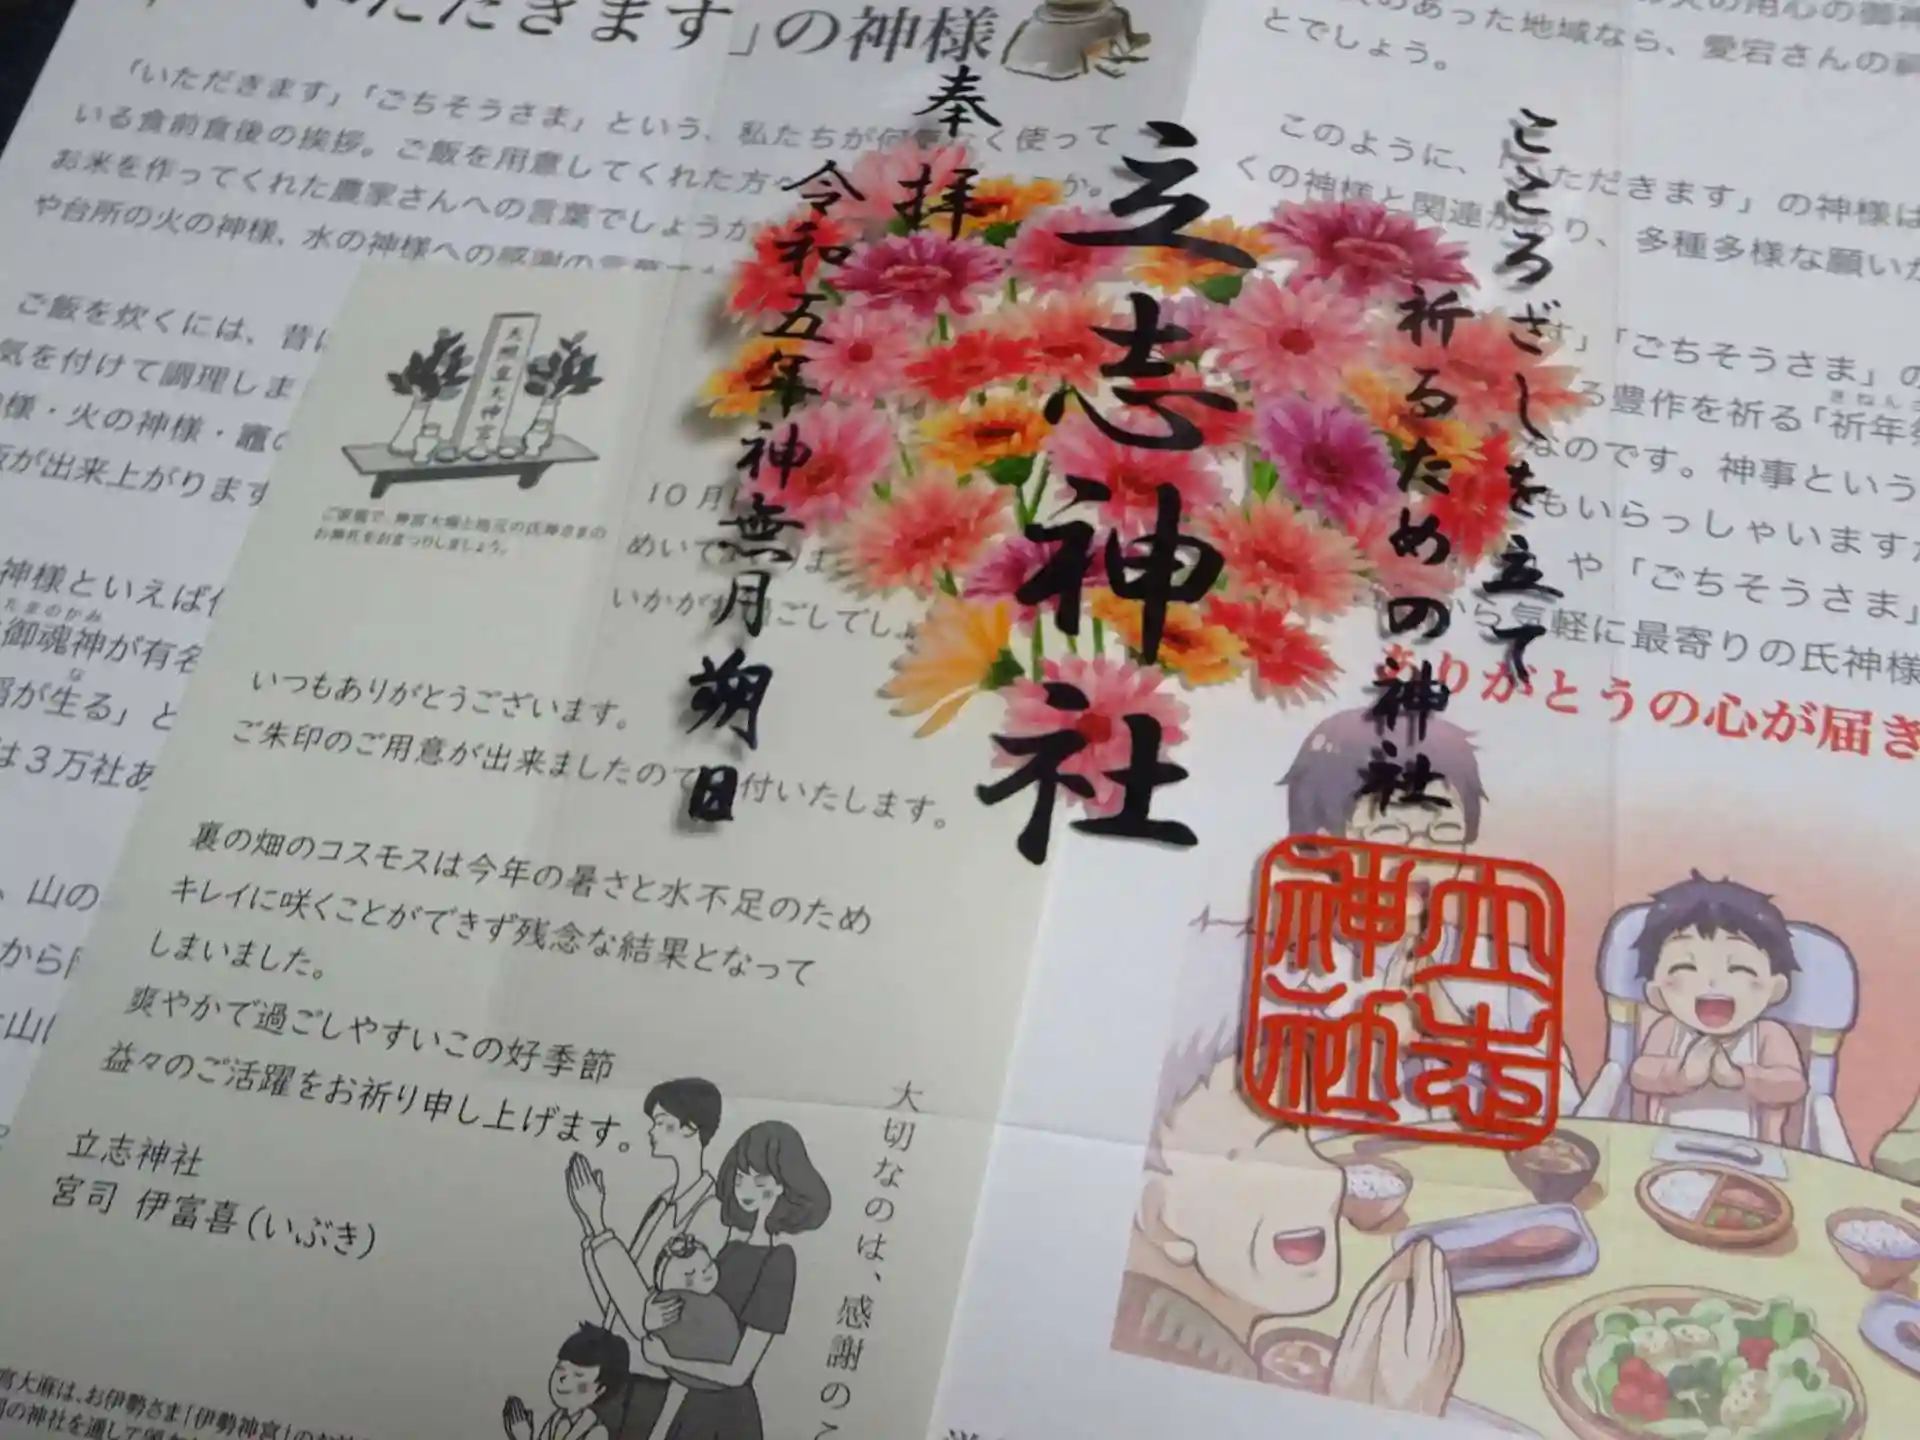 いただきます」の神様
「いただきます」「ごちそうさま」という、私たちが何気なく使って
いる食前食後の挨拶。ご飯を用意してくれた方々
か。
お米を作ってくれた農家さんへの言葉でしょうか
や台所の火の神様、水の神様への感謝の言葉
ご飯を炊くには、昔
気を付けて調理しま
様・火の神様・竈の
が出来上がります
神様といえば
たまのかみ
御魂神が有名
な
稲が生る」と
は3万社あ
、山の
から
山
奉拝
令和五年神無月朔日
立志神社
こころざしを立て
祈るための神社
立志神社
天照皇大神宮
ご家庭で、神宮大麻と地元の氏神さまの
お神札をおまつりしましょう。
10月
めいて
いかがお過ごしでしょ
いつもありがとうございます。
ご朱印のご用意が出来ましたので
付いたします。
裏の畑のコスモスは今年の暑さと水不足のため
キレイに咲くことができず残念な結果となって
しまいました。
爽やかで過ごしやすいこの好季節
益々のご活躍をお祈り申し上げます。
立志神社
宮司 伊富喜(いぶき)
大切なのは、感謝のこ
宮大麻は、お伊勢さま「伊勢神宮」のお
の神社を通して
のあった地域なら、愛宕さんの
とでしょう。
このように、「いただきます」の神様は
くの神様と関連があり、多種多様な願いが
す」「ごちそうさま」の
きねん
る豊作を祈る「祈年祭
なのです。神事という
もいらっしゃいますが
や「ごちそうさま」
から気軽に最寄りの氏神様
ありがとうの心が届き